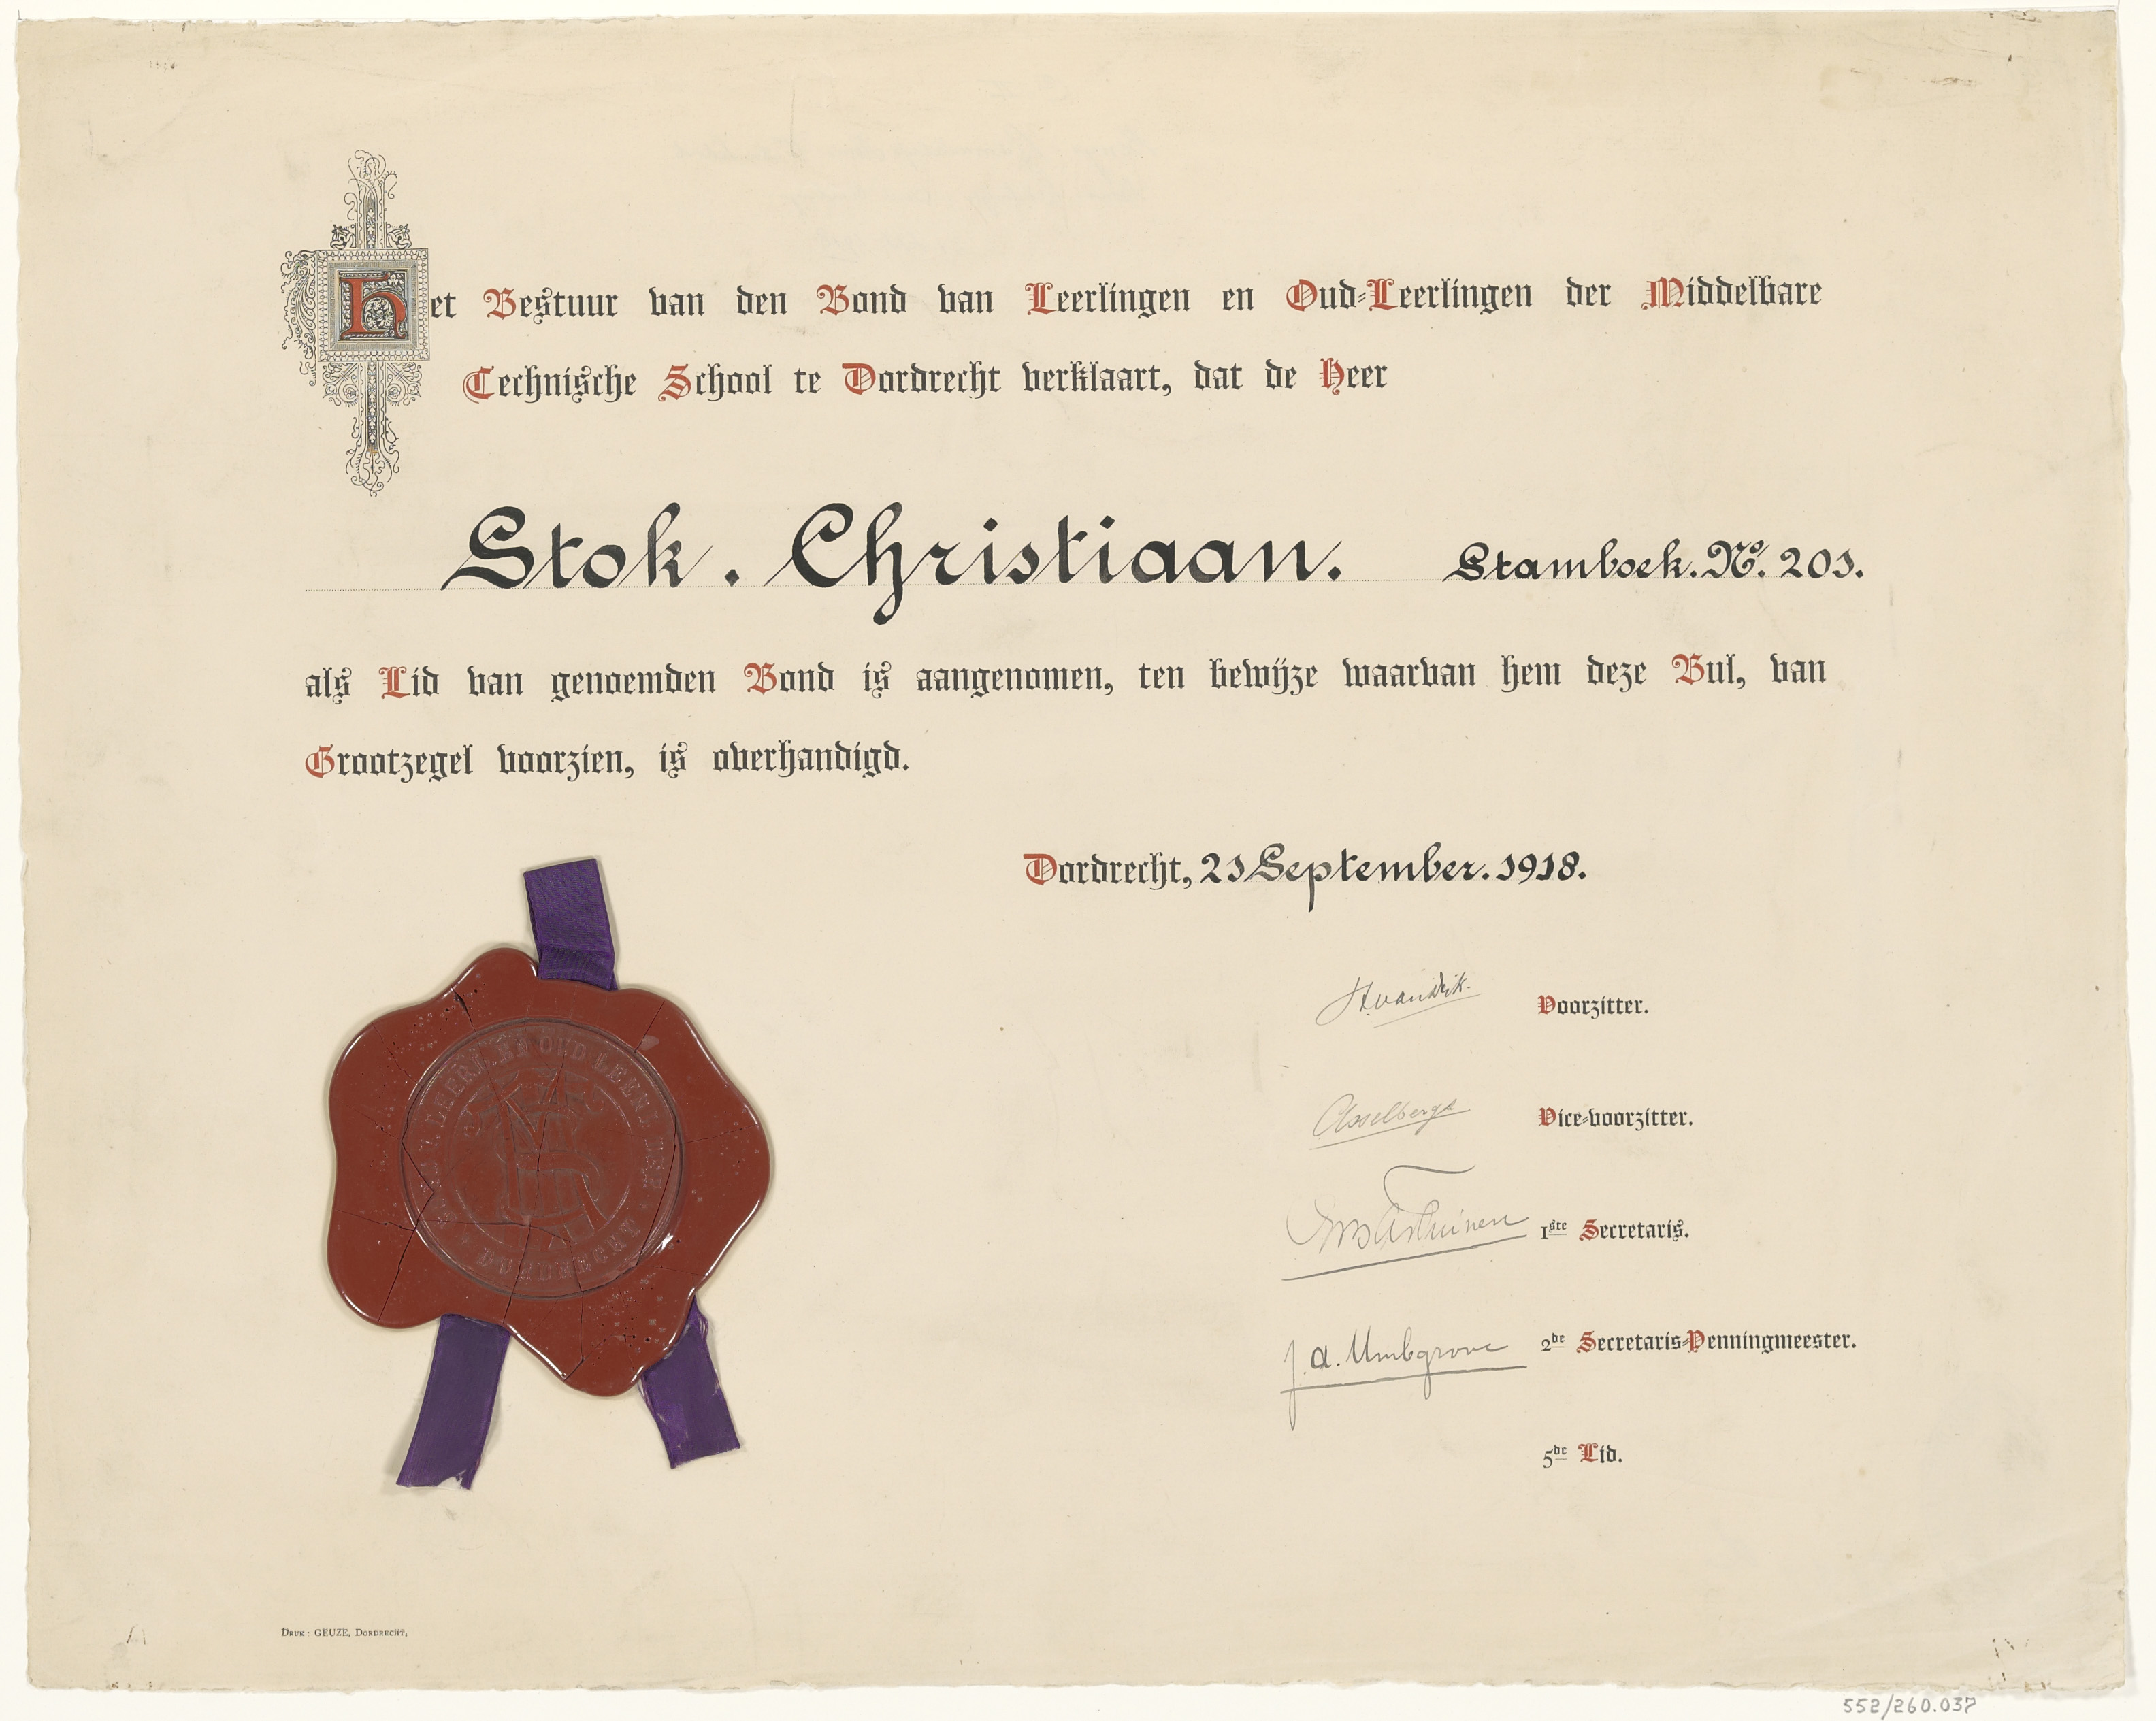 Het Bestuur van den Bond van Leerlingen en Oud-Leerlingen der Middelbare
Technische School te Dordrecht verklaart, dat de Heer
Stok. Christiaan. Stamboek. No. 201.
als Lid van genoemden Bond is aangenomen, ten bewijze waarvan hem deze Bul, van
Grootzegel voorzien, is overhandigd.
Dordrecht, 21 September. 1918.
H. van Dik. Voorzitter.
Asselbergs Vice-voorzitter.
1ste Secretaris.
J. A. Umbgrove 2de Secretaris-Penningmeester.
5de Lid.
OUD LEERL
DORDRECHT
Druk: GEUZE, Dordrecht.
552/260.037